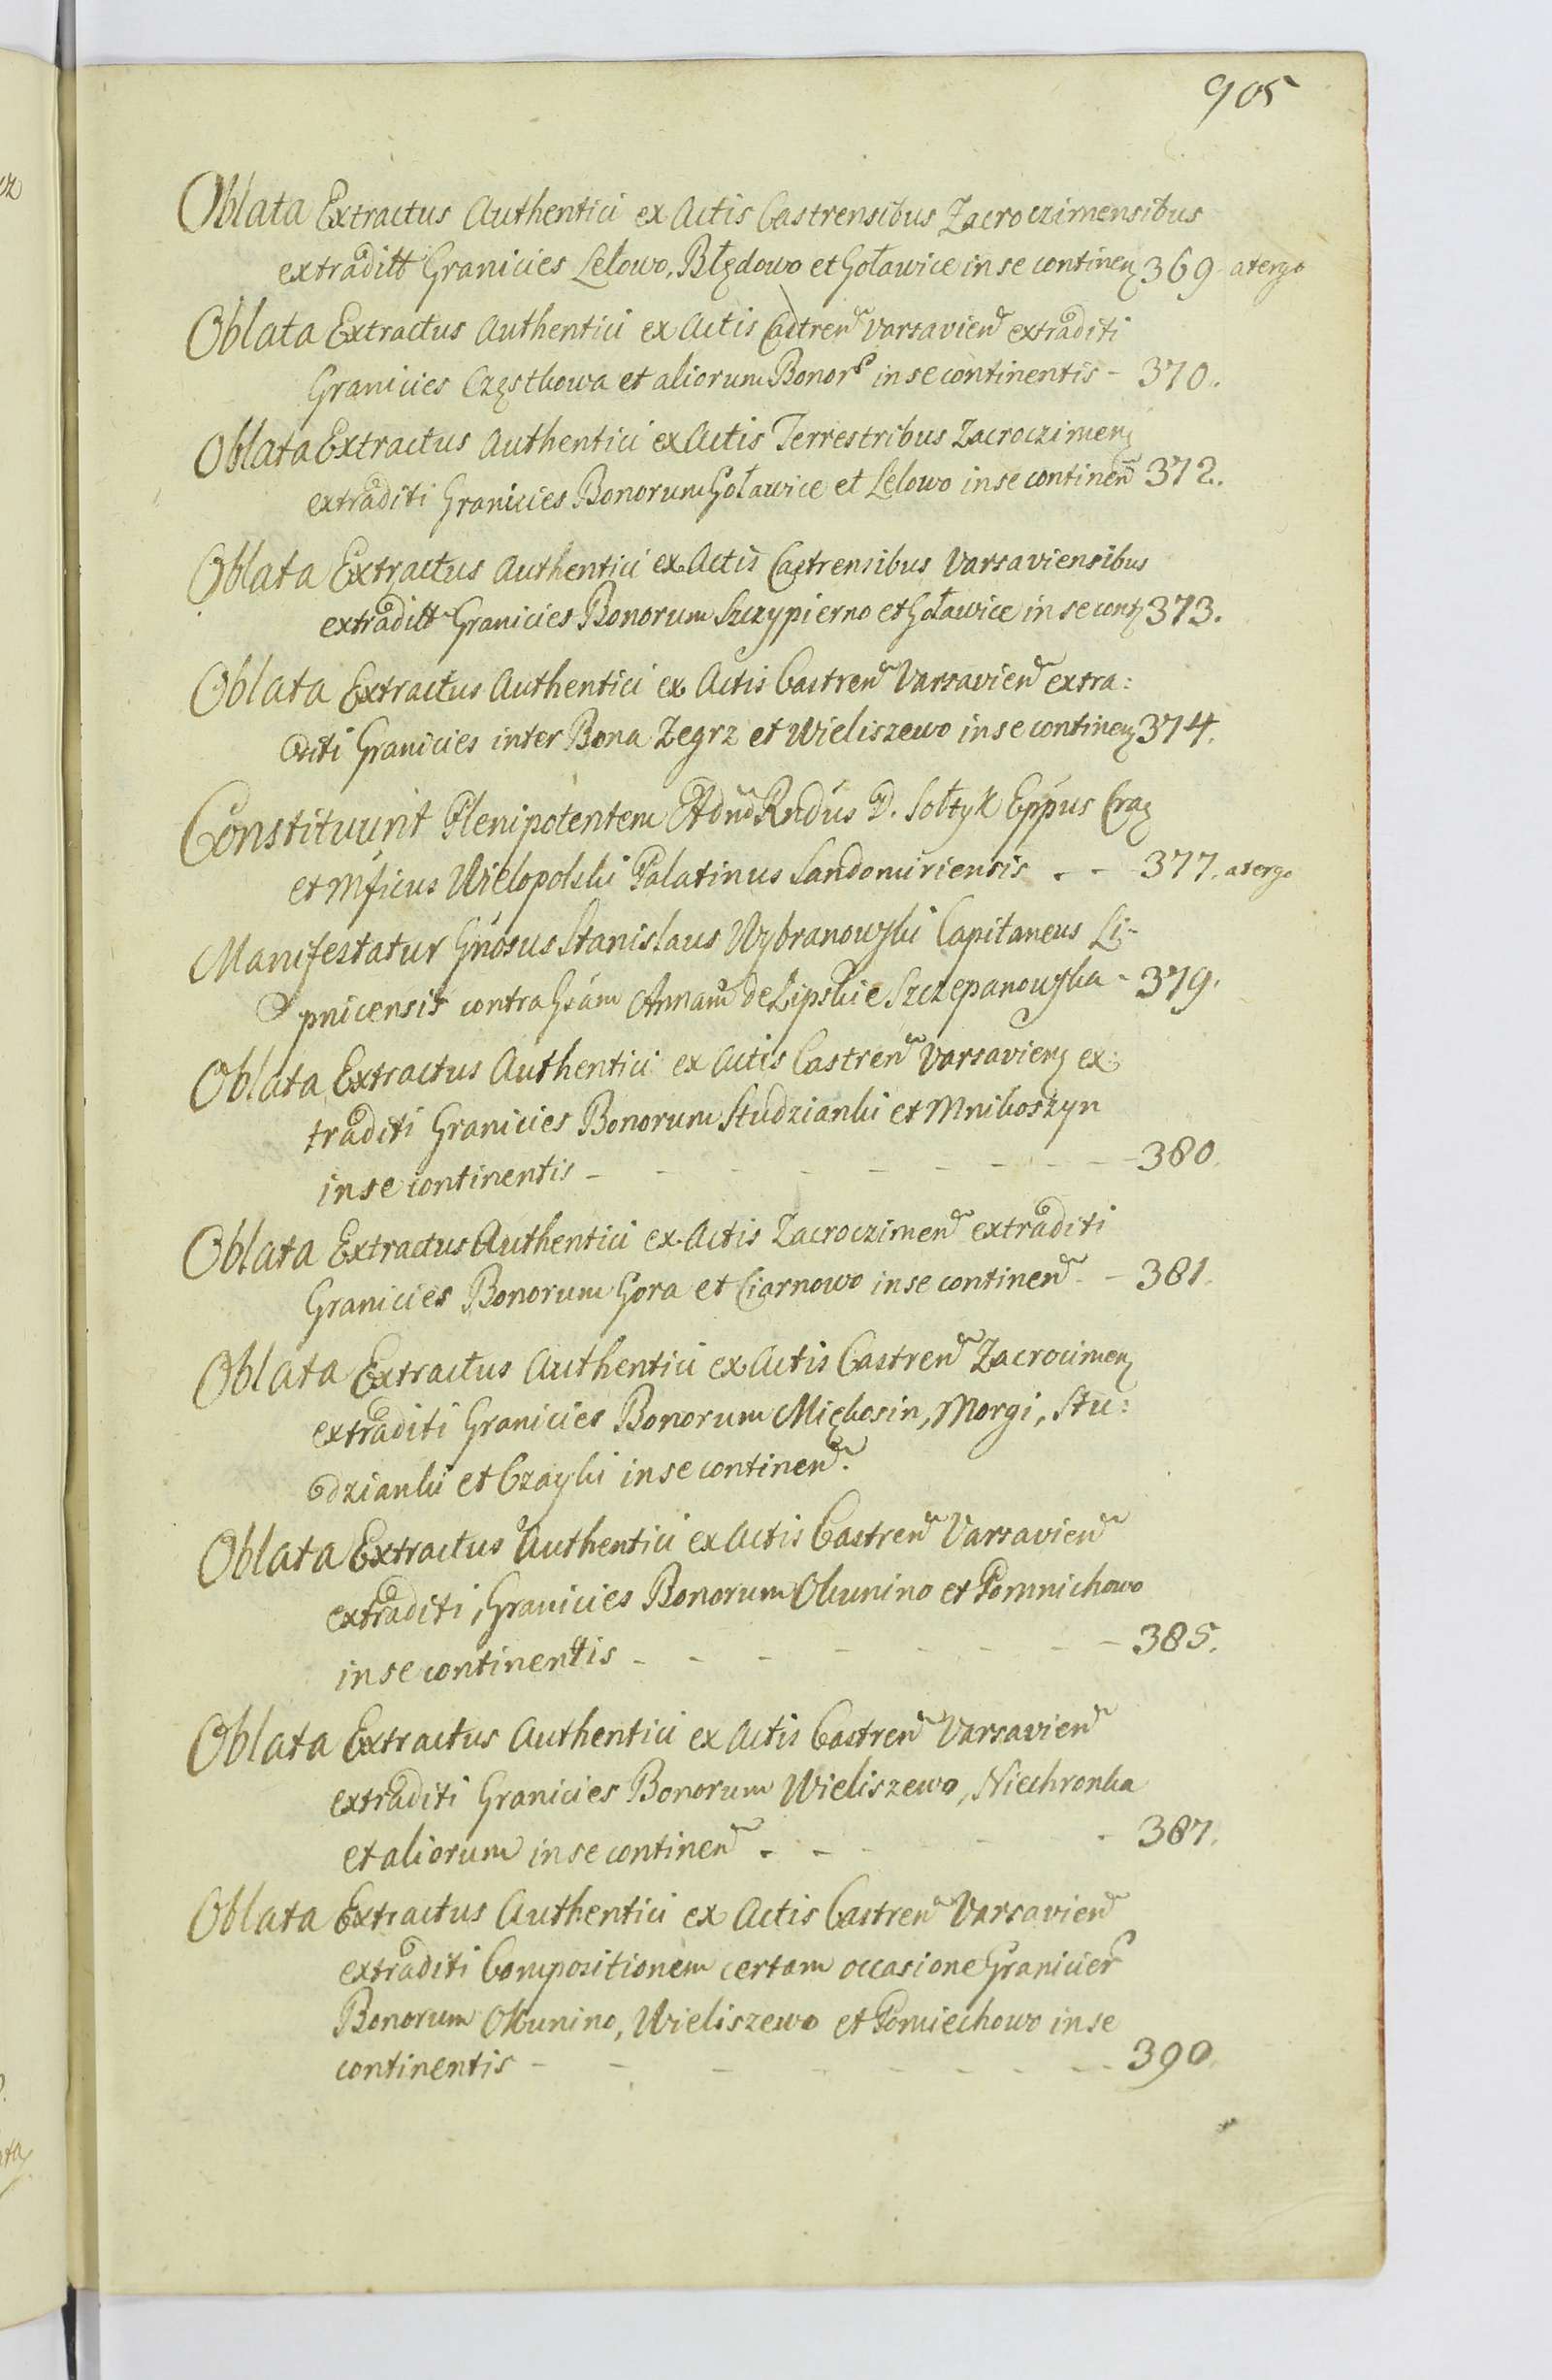 905
Oblata Extractus Authentici ex Actis Castrensibus Zacroczimensibus
extraditt Granicies Lelowo, Błędowo et Goławice in se continen 369 a tergo
Oblata Extractus Authentici ex Actis Castren Varsavien extraditi
Granicies Częstkowa et aliorum Bonor in se continentis - 370.
Oblata Extractus Authentici ex Actis Terrestribus Zacroczimen
extraditi Granicies Bonorum Goławice et Lelowo in se continen 372.
Oblata Extractus Authentici ex Actis Castrensibus Varsaviensibus
extraditt Granicies Bonorum Szczypierno et Goławice in se cont 373.
Oblata Extractus Authentici ex Actis Castren Varsavien extra:
diti Granicies inter Bona Zegrz et Wieliszewo in se continen 374.
Constituunt Plenipotentem Rndus D. Sołtyk Eppus Crac
et Mficus Wielopolski Palatinus Sandomiriensis - - 377. a tergo
Manifestatur Gnosus Stanislaus Wybranowski Capitaneus Li-
pnicensis contra Gsam Annam de Lipskie Szczepanowska - 379.
Oblata Extractus Authentici ex Actis Castren Varsavien ex:
traditi Granicies Bonorum Studzianki et Mnikoszyn
in se continentis - - - - - - - 380.
Oblata Extractus Authentici ex Actis Zacroczimen extraditi
Granicies Bonorum Gora et Ciarnowo in se continen - 381.
Oblata Extractus Authentici ex Actis Castren Zacrocimen
extraditi Granicies Bonorum Miękosin, Morgi, Stu:
dzianki et Czayki in se continen.
Oblata Extractus Authentici ex Actis Castren Varsavien
extraditi, Granicies Bonorum Okunino et Pomnichowo
in se continentis - - - - - - - 385.
Oblata Extractus Authentici ex Actis Castren Varsavien
extraditi Granicies Bonorum Wieliszewo, Niechronka
et aliorum in se continen - - - - - 387.
Oblata Extractus Authentici ex Actis Castren Varsavien
extraditi Compositionem certam occasione Granicier
Bonorum Okunino, Wieliszewo et Pomiechowo in se
continentis - - - - - - - 390.